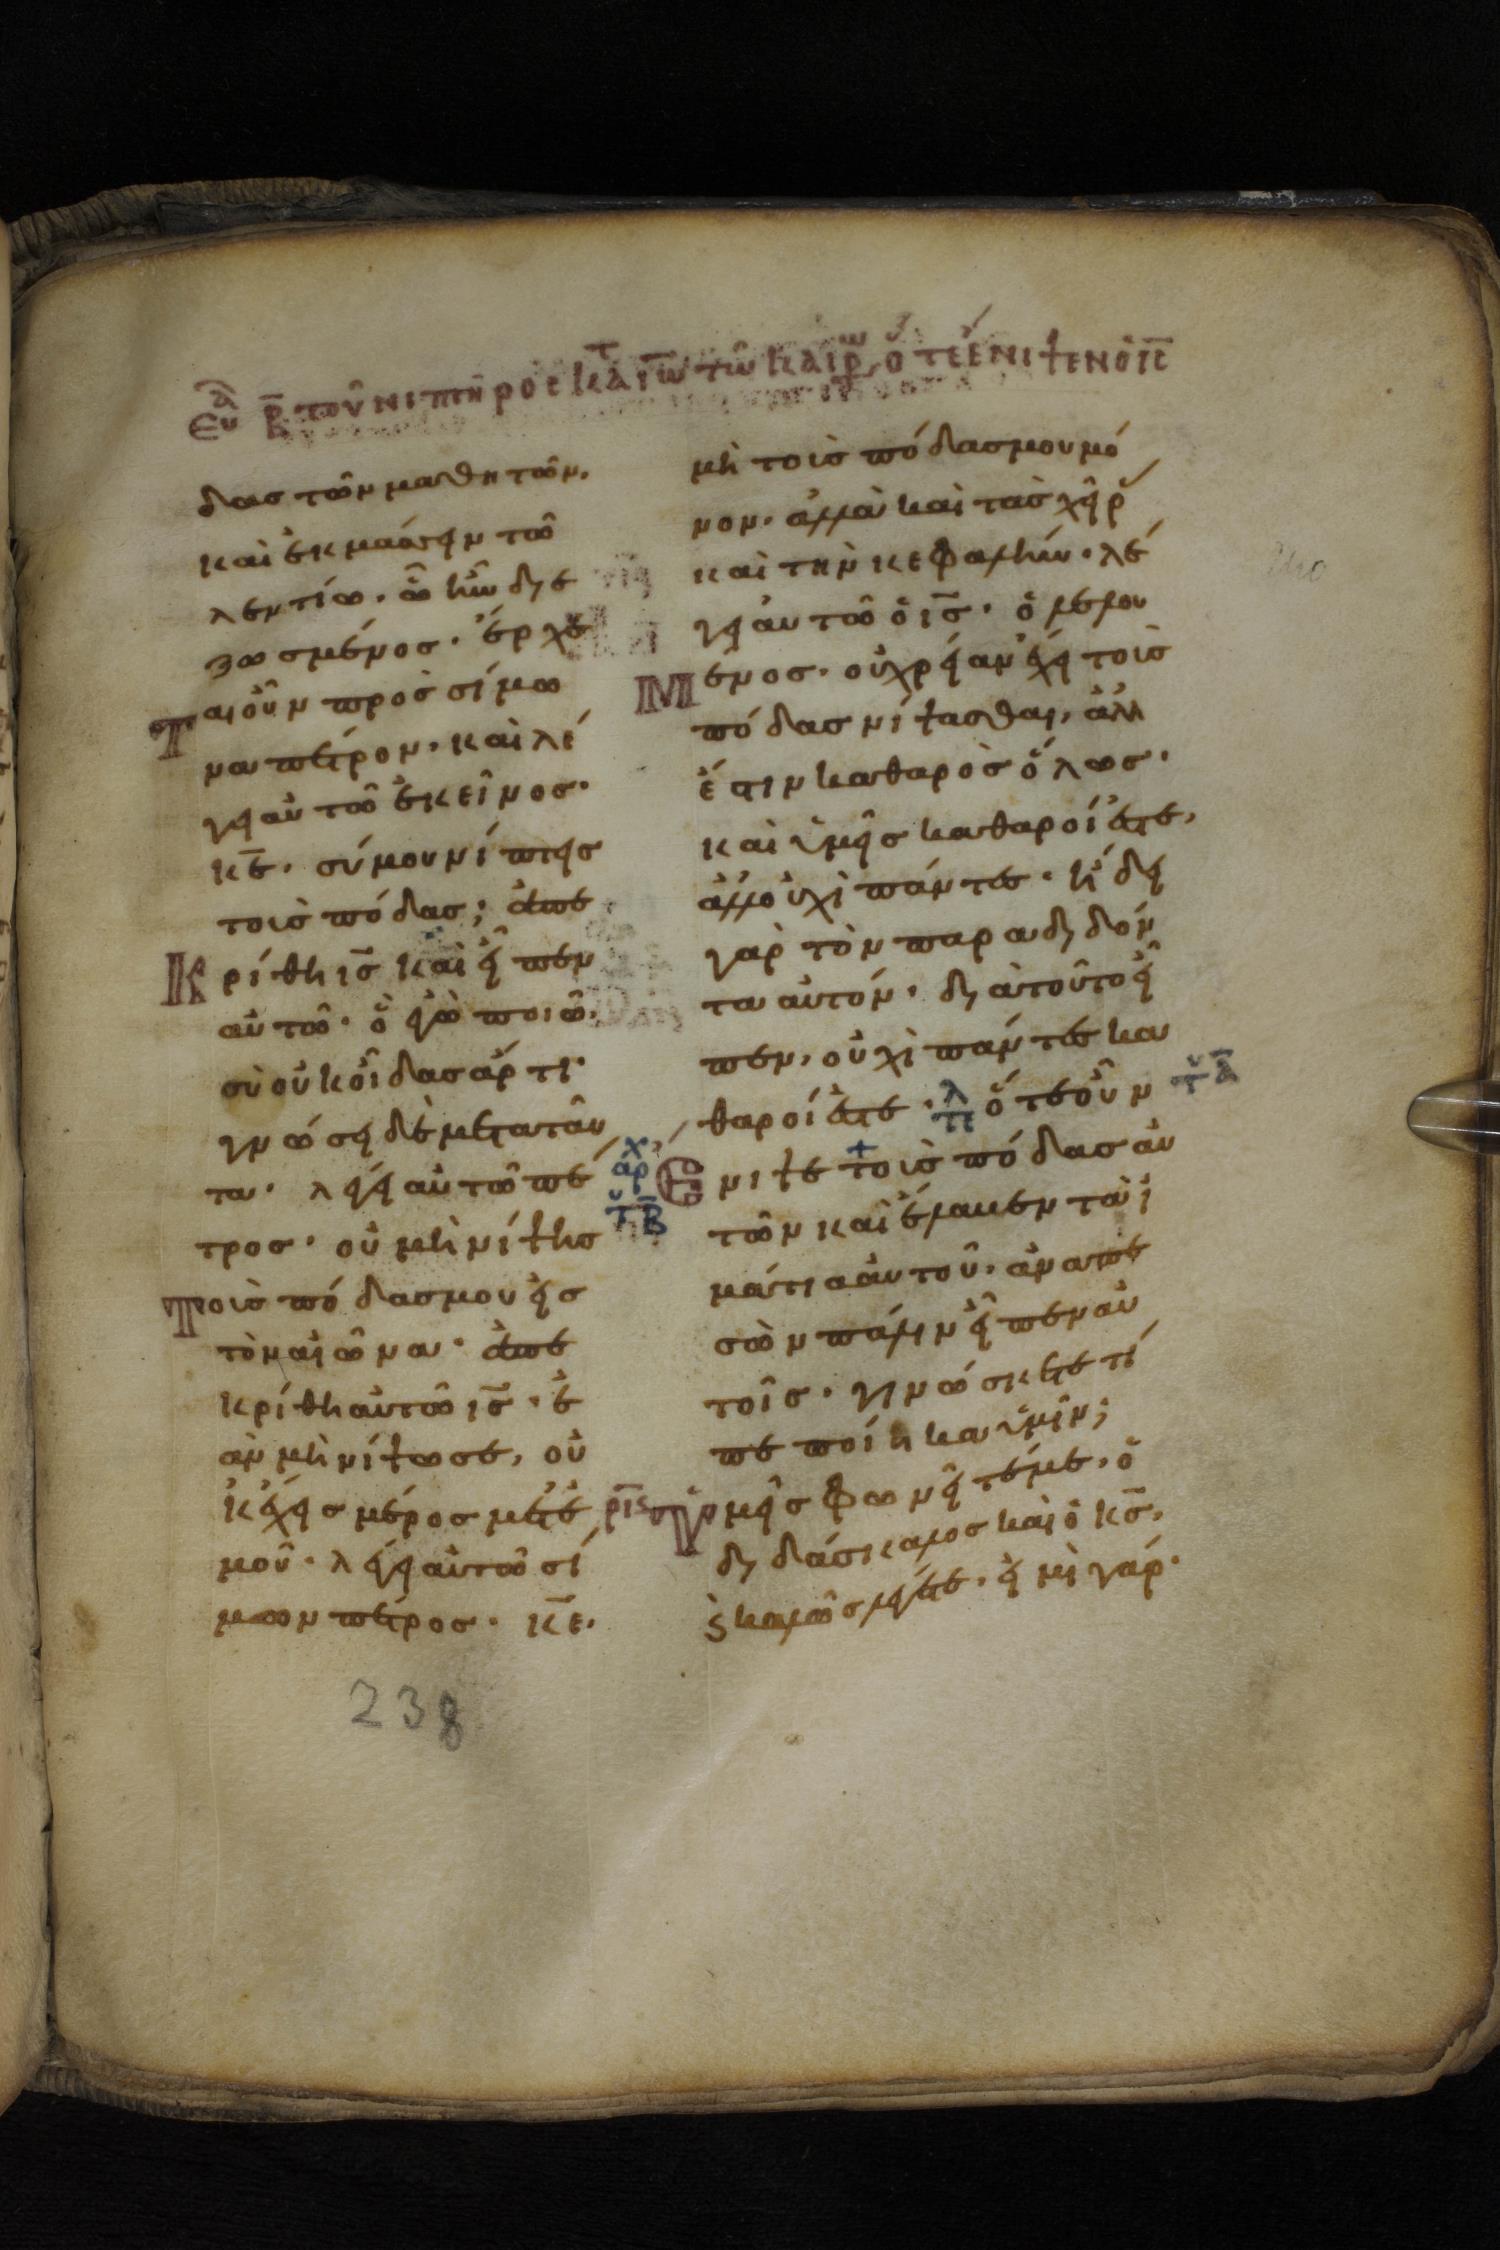 Ευα Β̅ τοῦ νιπτηρος κατ ιω τῶ καιρω, ὅτε ἔνιψεν ὁ ις̅
δας τῶν μαθητῶν,
καὶ ἐκμάσσειν τῶ
λεντίω. ὧ ἦν διε
ζωσμένος. ἔρχε
ται οὖν πρὸς σίμω
να πέτρον. καὶ λέ
γει αὐτῶ ἐκεῖνος.
κε̅. σύ μου νίπτεις
τοὺς πόδας; ἀπε
Κρίθη ις̅ καὶ εἶπεν
αὐτῶ. ὃ ἐγὼ ποιῶ,
σὺ οὐκ οἶδας ἄρτι.
γνώσῃ δὲ μετὰ ταῦ
τα. λέγει αὐτῶ πέ
τρος. οὐ μὴ νίψῃς
Τοὺς πόδας μου εἰς
τὸν αἰῶνα. ἀπε
κρίθη αὐτῶ ις̅. ἐ
ὰν μὴ νίψω σε, οὐ
κ ἔχεις μέρος μετ ἐ
μοῦ. λέγει αὐτῶ σί
μων πέτρος. κε̅,
μὴ τοὺς πόδας μου μό
νον. ἀλλὰ καὶ τὰς χεῖρ
καὶ τὴν κεφαλήν. λέ
γει αὐτῶ ὁ ις̅. ὁ λελου
Μένος. οὐ χρείαν ἔχει τοὺς
πόδας νίψασθαι, ἀλλ
ἔστιν καθαρὸς ὅλως.
καὶ ὑμεῖς καθαροί ἐστε,
ἀλλ οὐχὶ πάντες. ᾔδει
γὰρ τὸν παραδιδόν
τα αὐτόν. διὰ τοῦτο εἶ
πεν, οὐχὶ πάντες κα
θαροί ἐστε. ὅτε οὖν
Ενιψε τοὺς πόδας αὐ
τῶν καὶ ἔλαβεν τὰ ἱ
μάτια αὐτοῦ. ἀναπε
σὼν πάλιν εἶπεν αὐ
τοῖς. γινώσκετε τί
πεποίηκα ὑμῖν;
ρις̅ Ὑμεῖς φωνεῖτέ με, ὁ
διδάσκαλος καὶ ὁ κς̅,
καὶ καλῶς λέγετε. εἰμὶ γάρ.
238